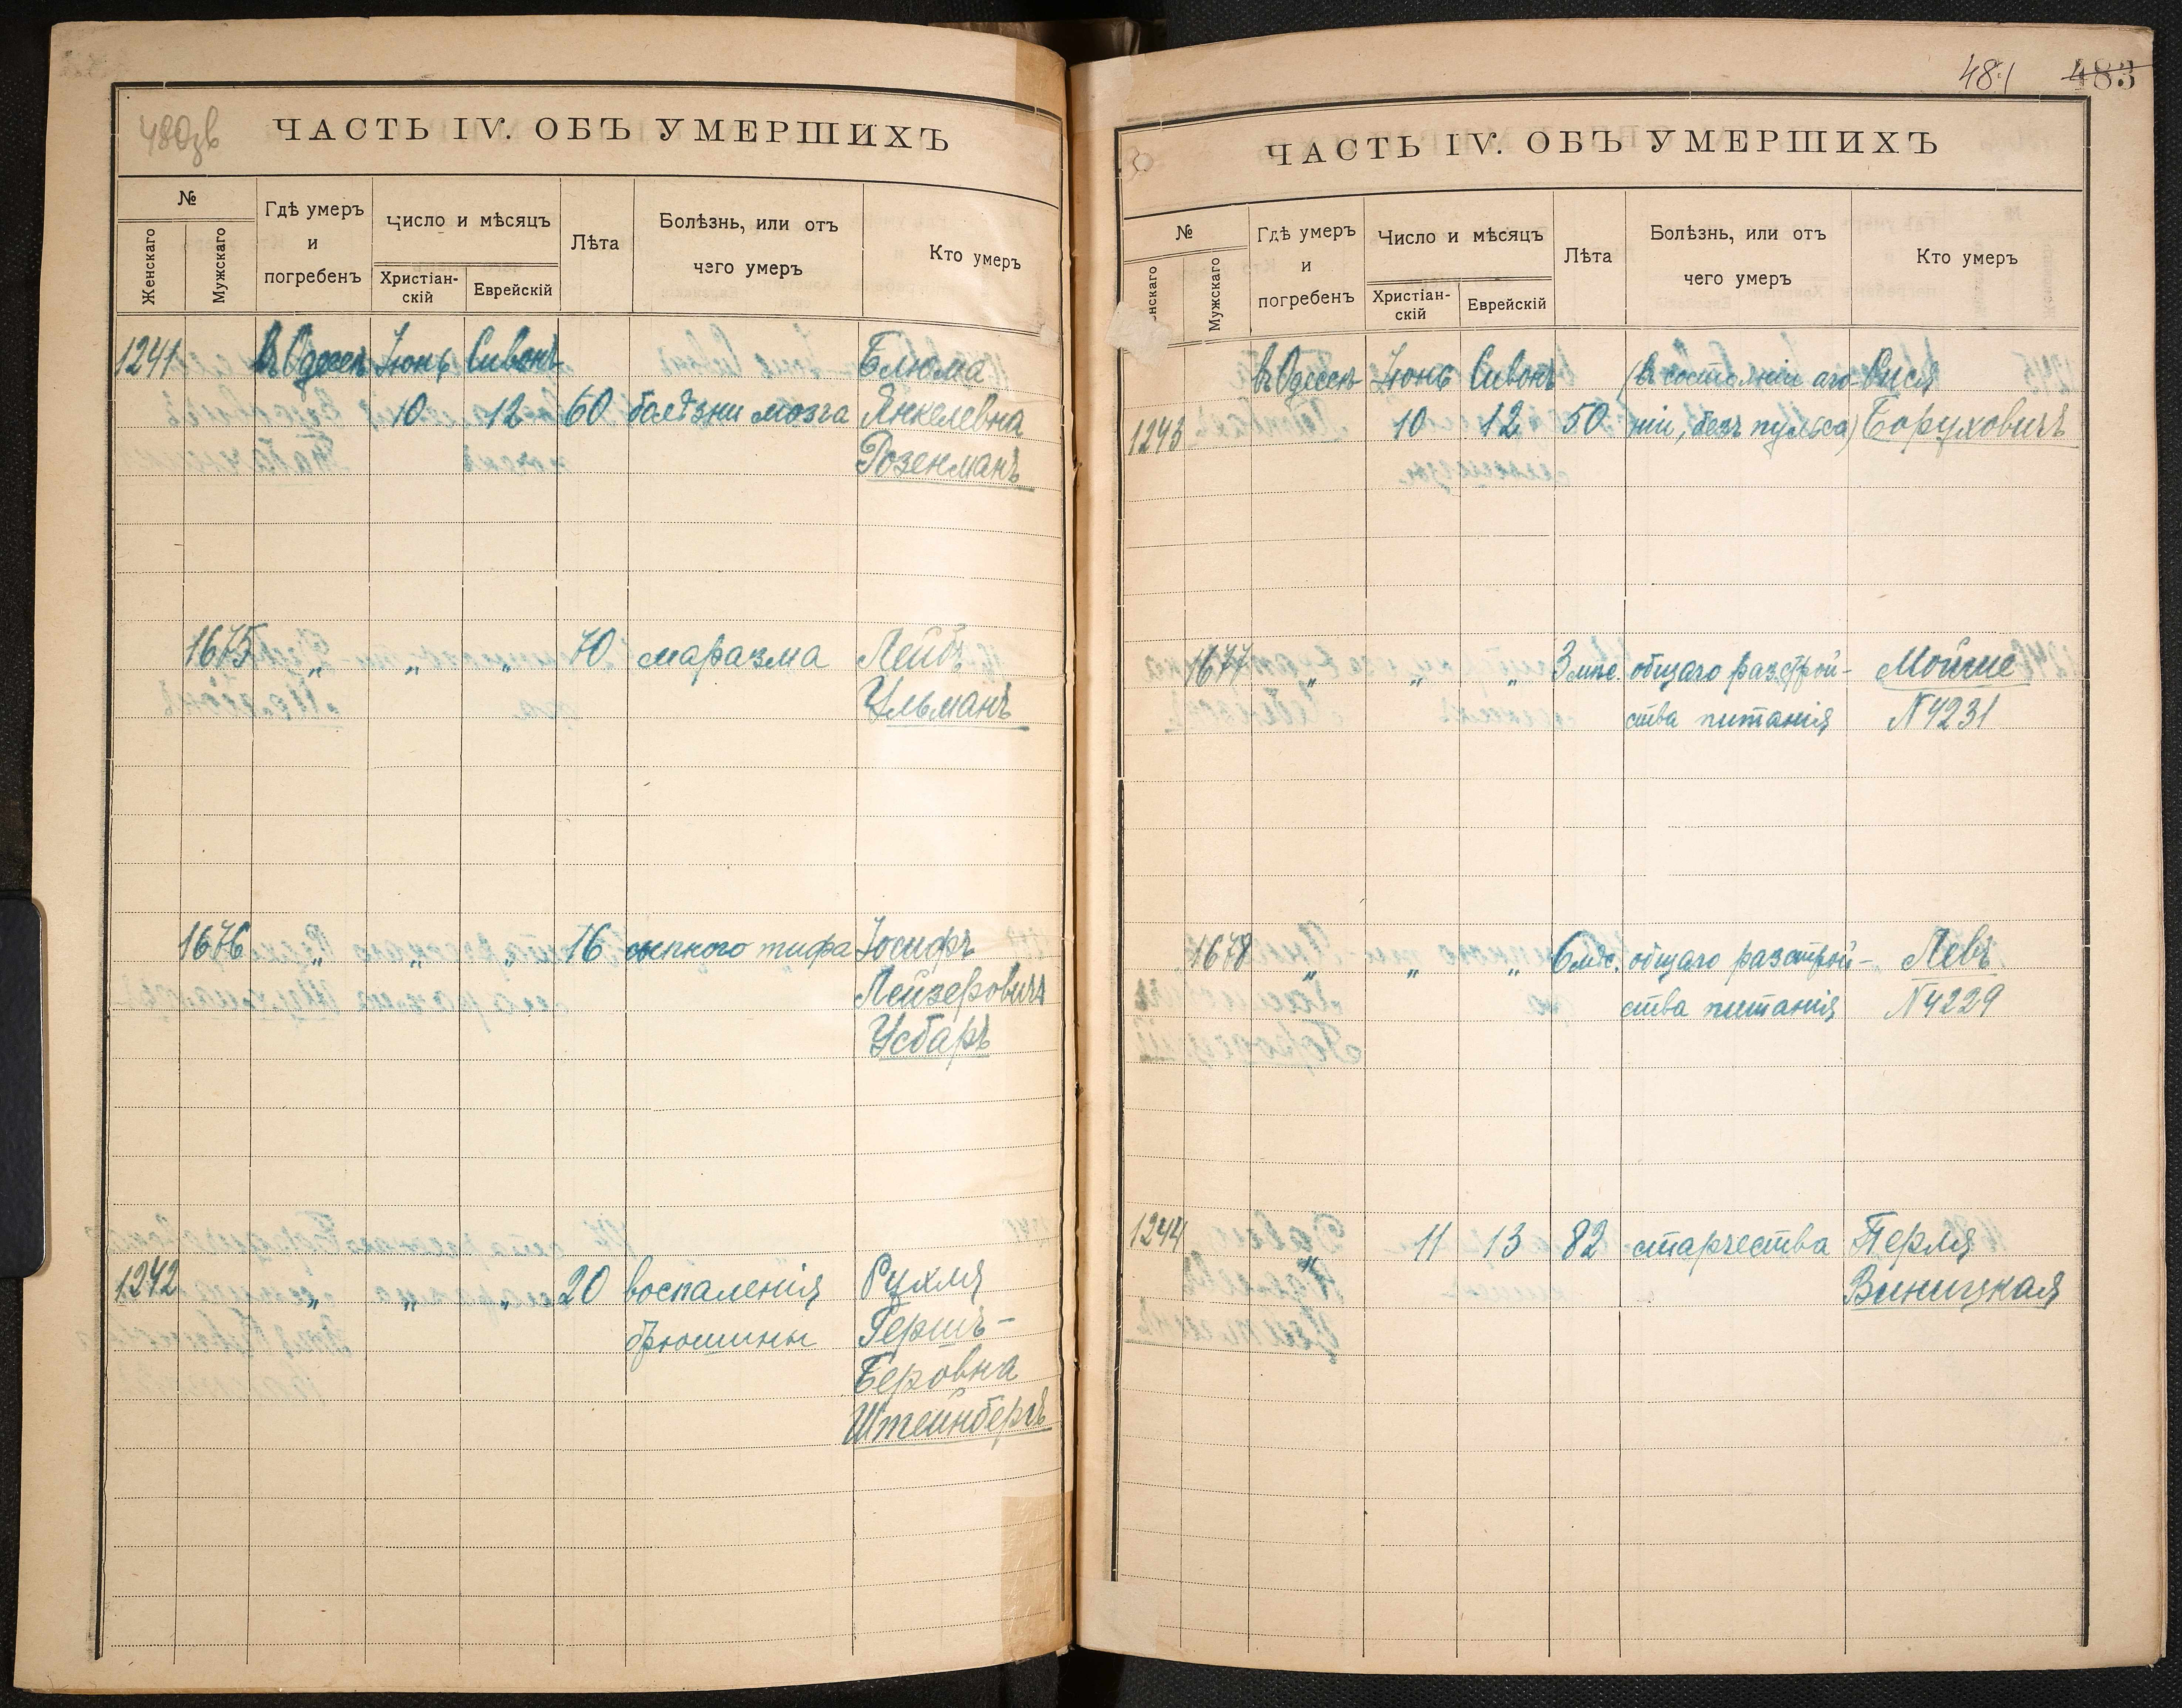 480зв
ЧАСТЬ IV. ОБЪ УМЕРШИХЪ
№
Женскаго
Мужскаго
Гдѣ умеръ
и
погребенъ
Число и мѣсяцъ
Христіан-
скій
Еврейскій
Лѣта
Болѣзнь, или отъ
чего умеръ
Кто умеръ
1241 въ Одессѣ Іюнь Сивонъ Блюма
10 12 60 болѣзни мозга Янкелевна
Розенманъ
1675 „ „ „ 70 маразма Лейбъ
Ульманъ
1676 „ „ „ 16 сыпного тифа Іосифъ
Лейзеровичъ
Усбаръ
1242 „ „ „ 20 воспаленія Рухля
брюшины Гершъ-
Беровна
Штейнбергъ
481 483
ЧАСТЬ IV. ОБЪ УМЕРШИХЪ
№
нскаго
Мужскаго
Гдѣ умеръ
и
погребенъ
Число и мѣсяцъ
Христіан-
скій
Еврейскій
Лѣта
Болѣзнь, или отъ
чего умеръ
Кто умеръ
въ Одессѣ Іюнь Сивонъ (въ состояніи аго-
1243 10 12 50 ніи, безъ пульса) Боруховичъ
1677 „ „ „ 3 мѣс. общаго разстрой- Мойше
ства питанія N 4231
1678 „ „ „ 6 мѣс. общаго разстрой- Левъ
ства питанія N 4229
1244 „ 11 13 82 старчества Перля
Виницкая